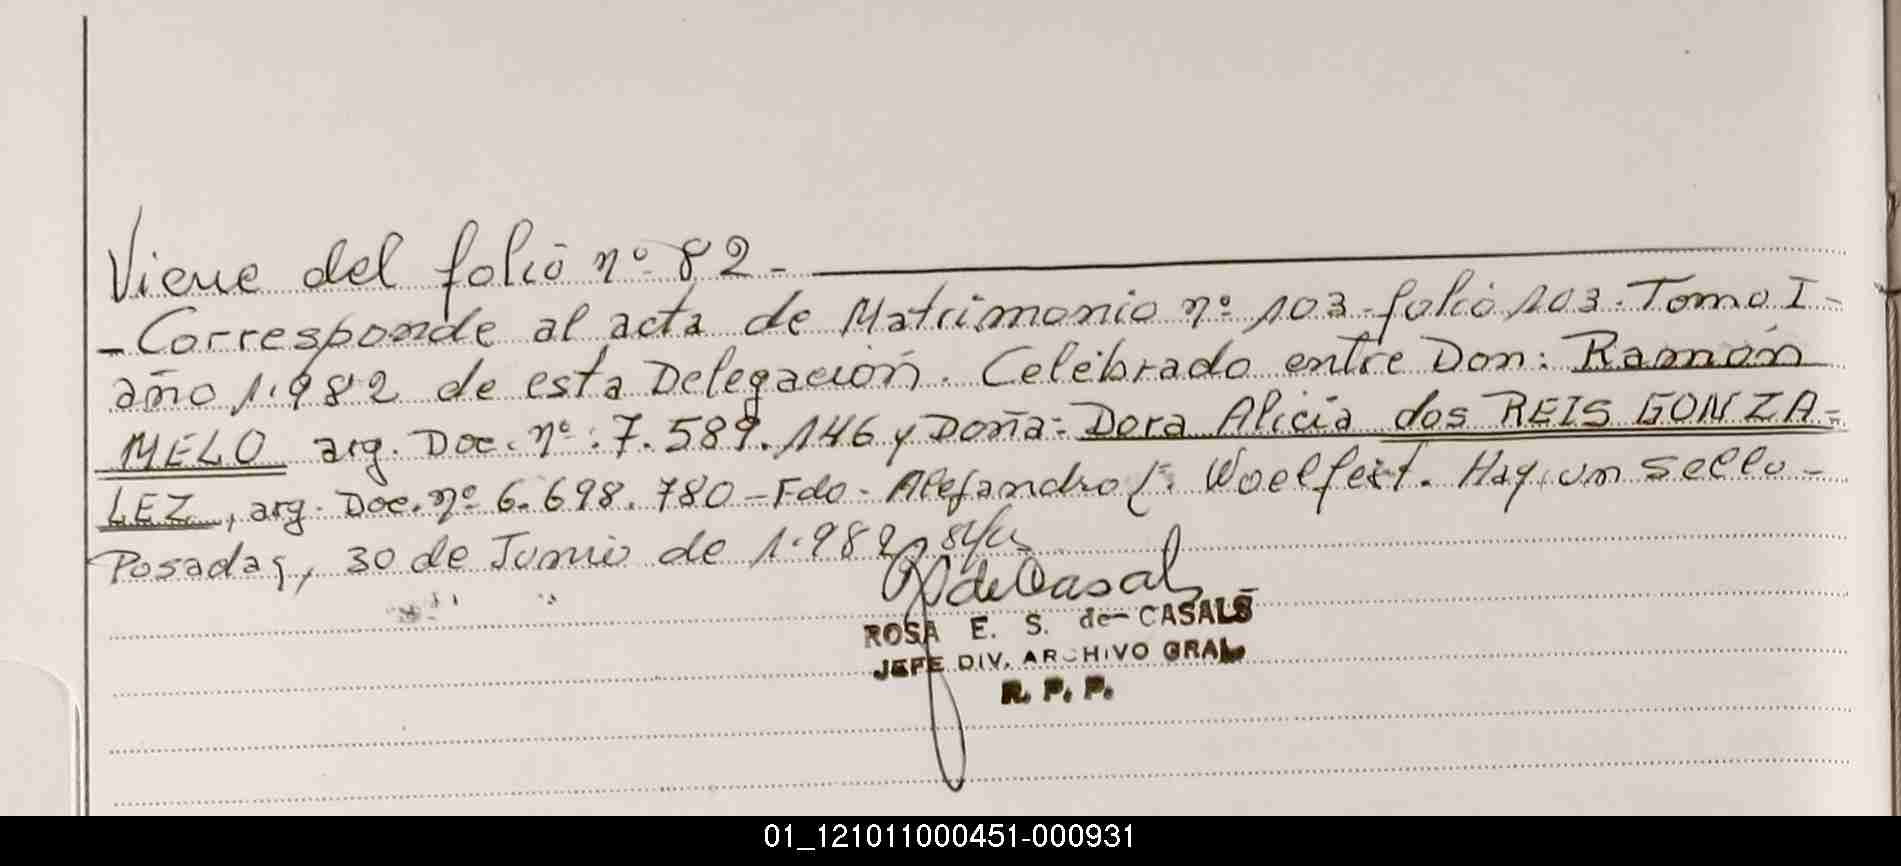 Viene del folio nº 82 -
- Corresponde al acta de Matrimonio nº 103 - folio 103 - Tomo I -
año 1.982 de esta Delegación. Celebrado entre Don: Ramón
MELO arg. Doc. nº: 7.589.146 y Doña: Dora Alicia dos REIS GONZA-
LEZ, arg. Doc. nº 6.698.780 - Fdo. Alejandro Woelfert. Hay un sello -
Posadas, 30 de Junio de 1.982
de Casals
ROSA E. S. de CASALS
JEFE DIV. ARCHIVO GRAL.
R. P. P.
01_121011000451-000931